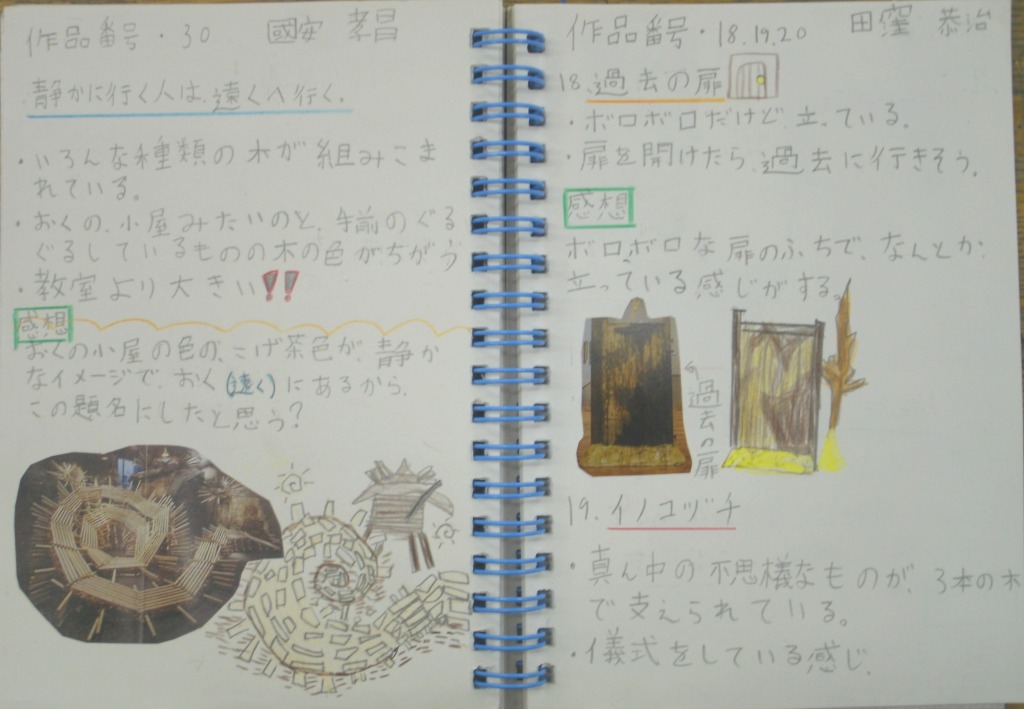 作品番号・30 國安 孝昌
静かに行く人は、遠くへ行く。
・いろんな種類の木が組みこま
れている。
・おくの、小屋みたいのと、手前のぐる
ぐるしているものの木の色がちがう
・教室より大きい!!
感想
おくの小屋の色の、こげ茶色が、静か
なイメージで、おく(遠く)にあるから、
この題名にしたと思う?
作品番号・18.19.20 田窪 恭治
18.過去の扉
・ボロボロだけど、立っている。
・扉を開けたら、過去に行きそう。
感想
ボロボロな扉のふちで、なんとか
立っている感じがする。
過去の扉
19.イノコヅチ
・真ん中の不思様なものが、3本の木
で支えられている。
・儀式をしている感じ。